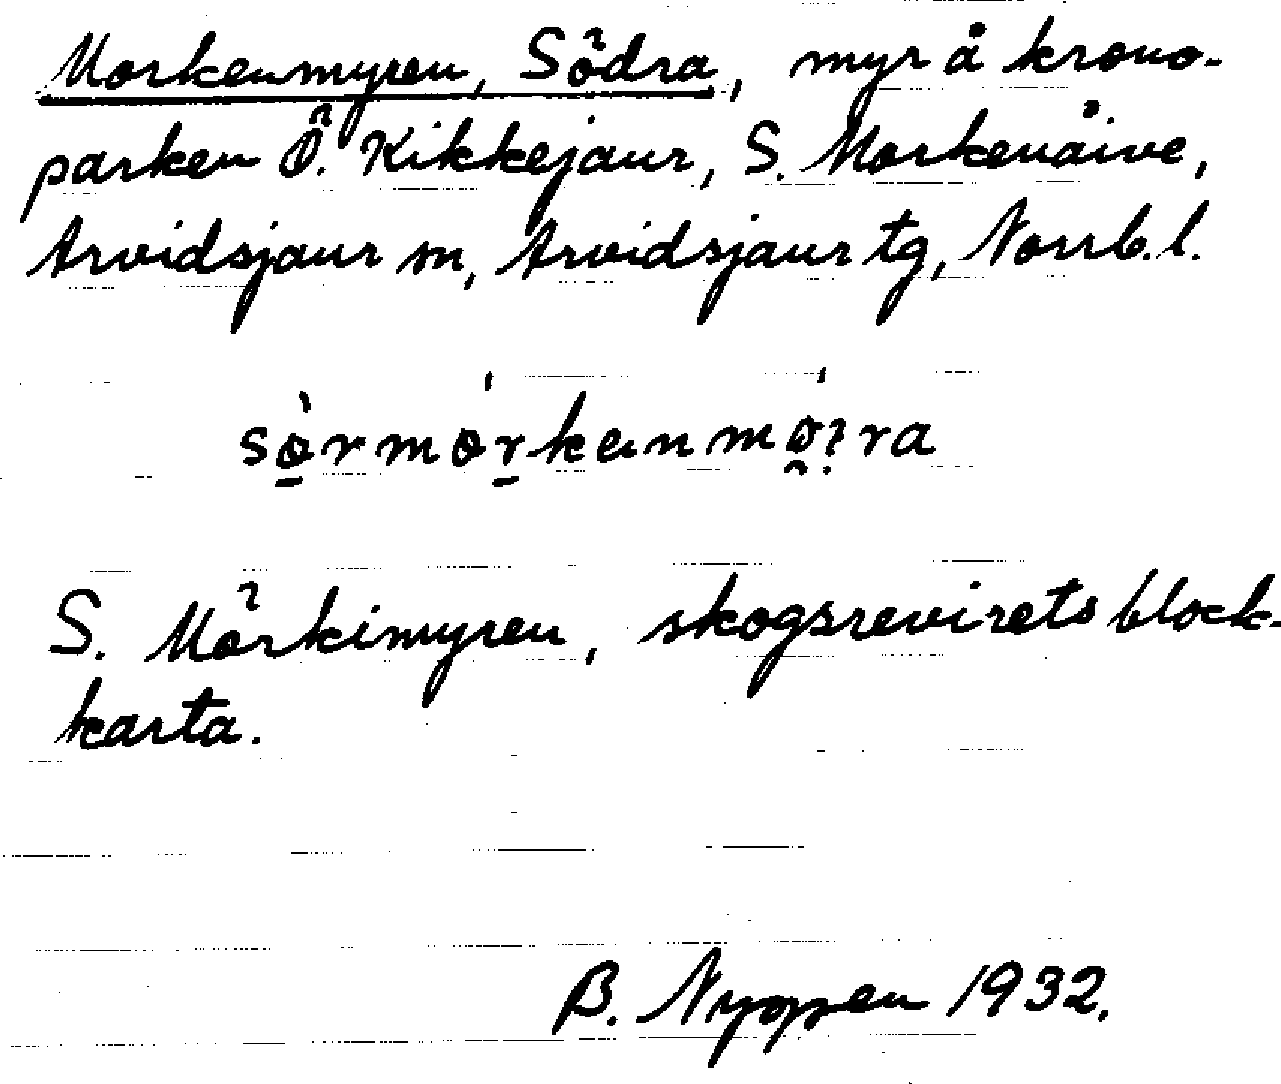 Morkenmyren, Södra, myr å krono-
parken Ö. Kikkejaur, S. Morkenåive,
Arvidsjaur sn, Arvidsjaur tg, Norrb. l.
S. Mörkimyren, skogsrevirets block-
karta.
B. Nyggen 1932.